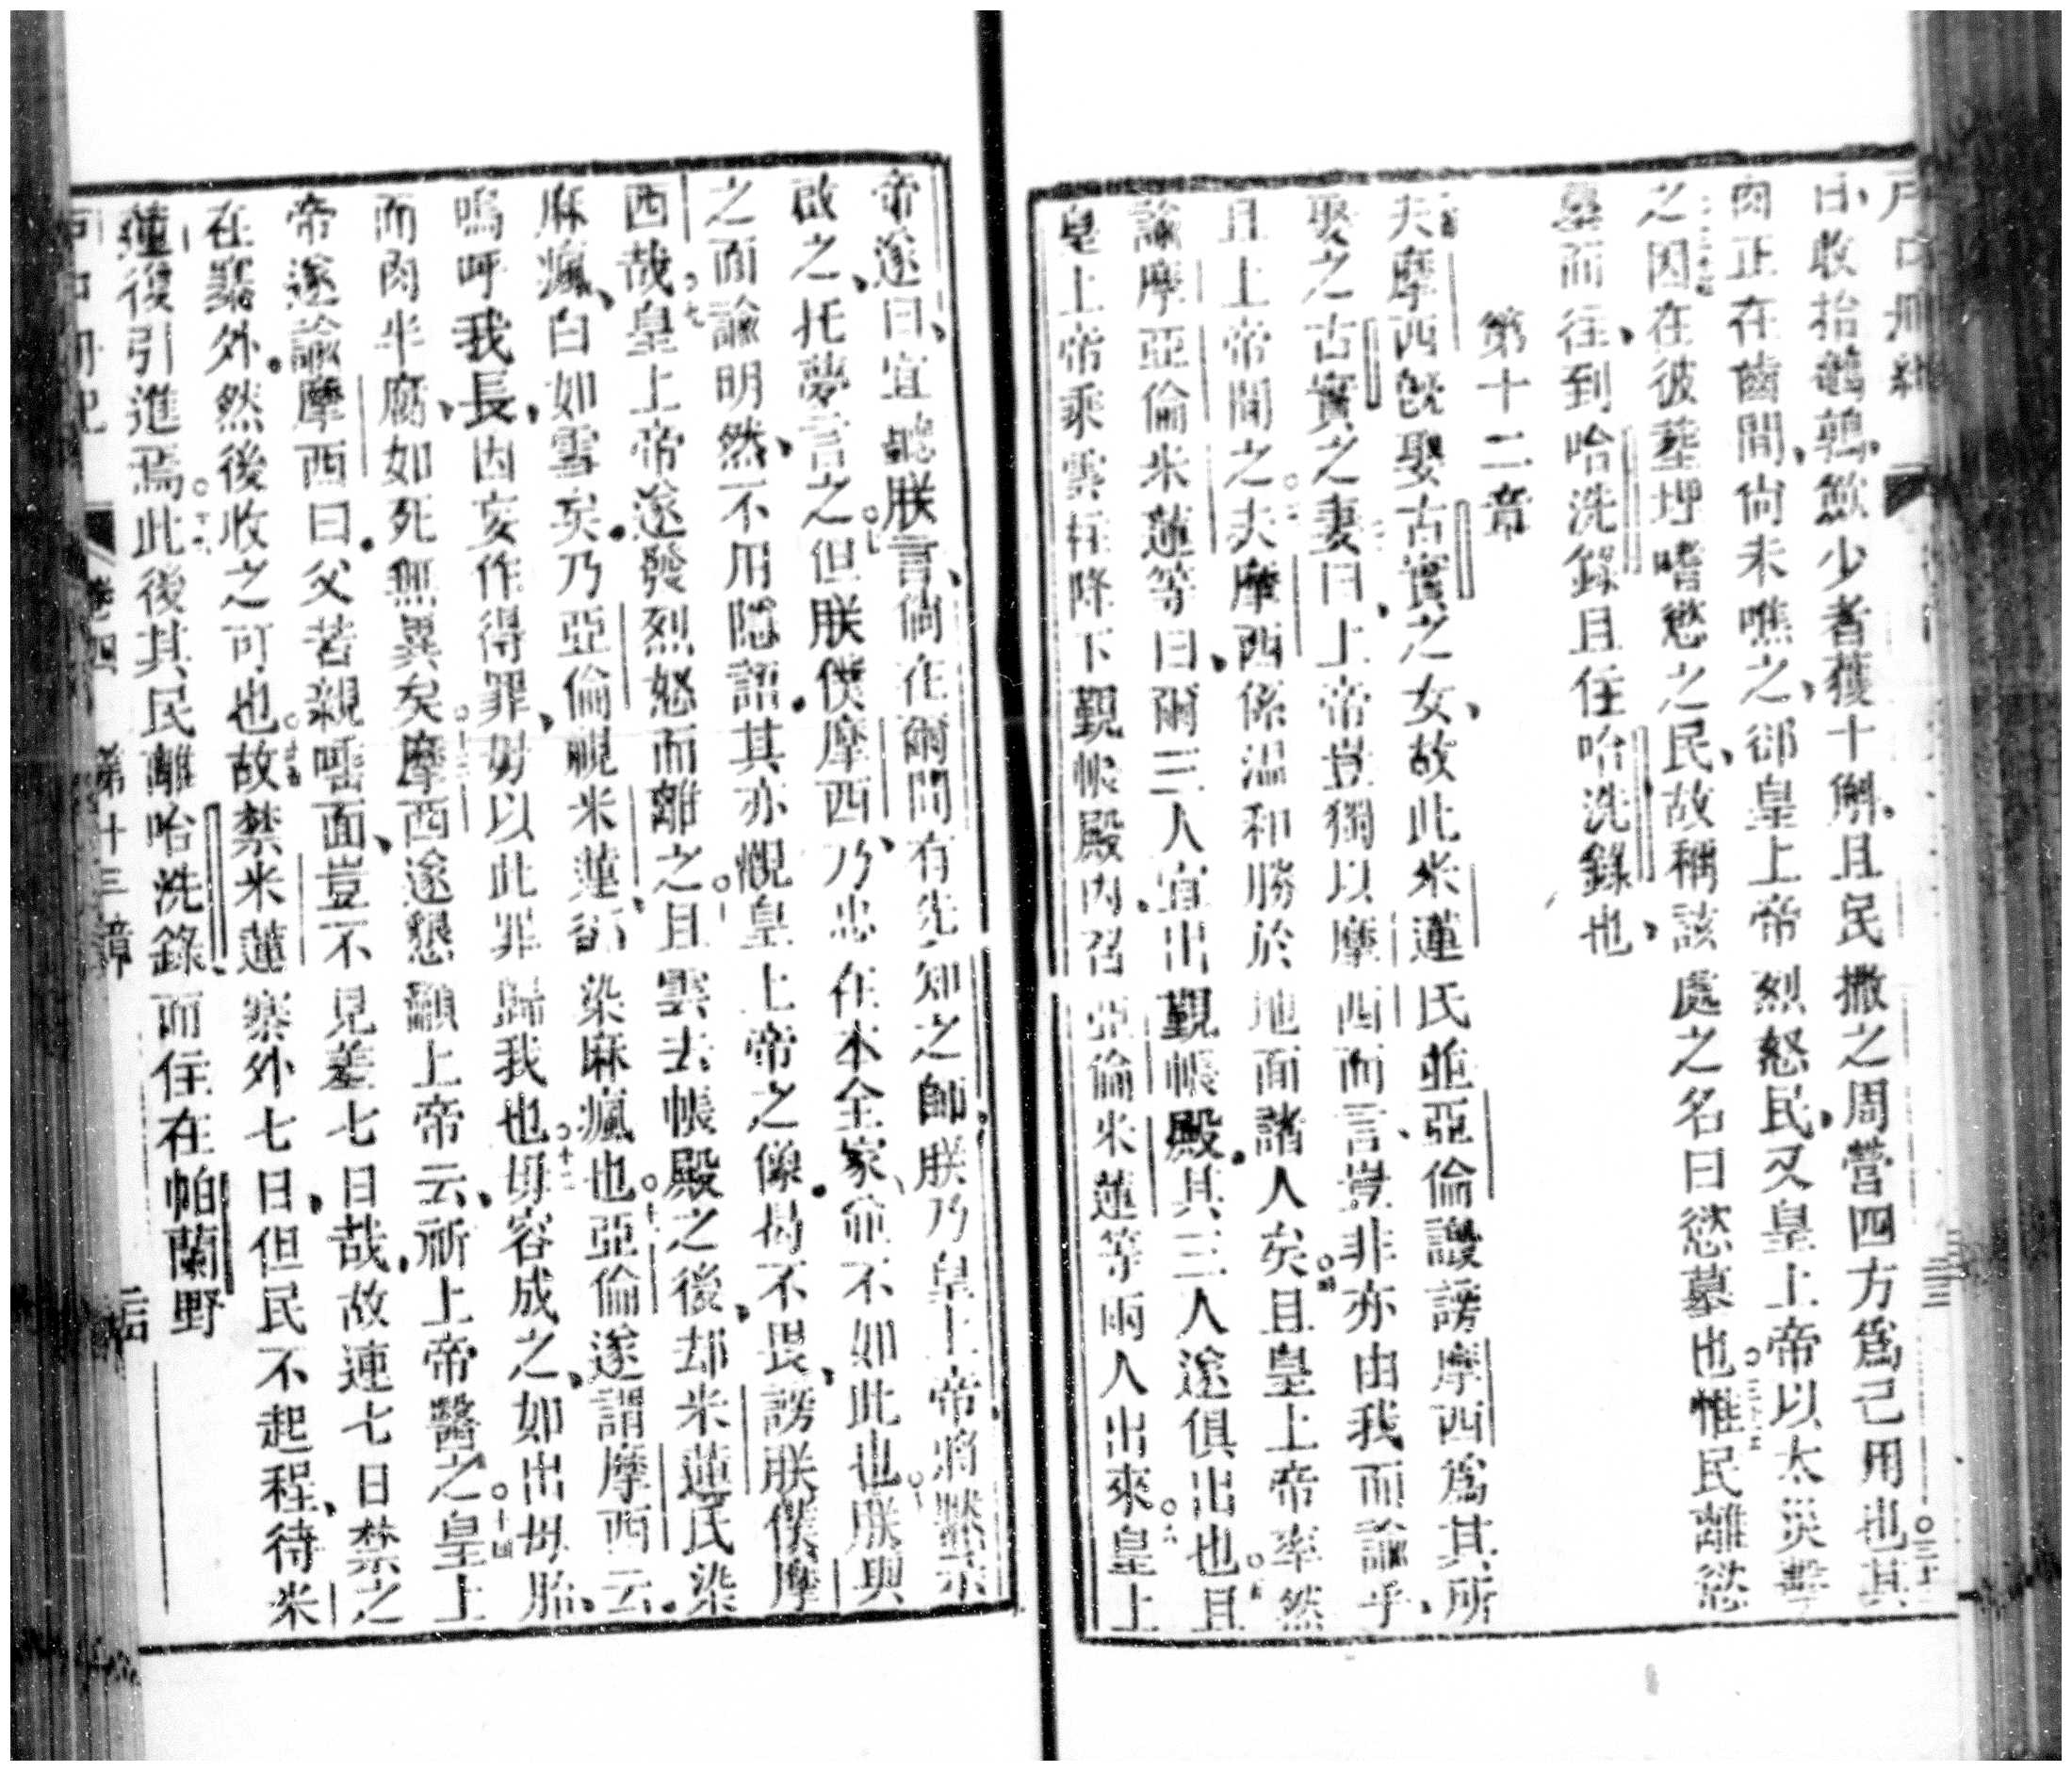 戶口冊紀
日、收拾鵪鶉、歛少者獲十斛、且民撒之周營四方爲己用也○三十三其
肉正在齒間、尙未噍之、郤皇上帝烈怒民、又皇上帝以太災擊
之○三十四因在彼塟埋嗜慾之民、故稱該處之名曰慾墓也○三十五惟民離慾
墓而往、到哈洗錄且住哈洗錄也、
第十二章
夫摩西旣娶古實之女、故此米蓮氏並亞倫謾謗摩西爲其所
娶之古實之妻○二曰、上帝豈獨以摩西而言、豈非亦由我而諭乎、
且上帝聞之○三夫摩西係温和勝於地面諸人矣○四且皇上帝率然
諭摩亞倫米蓮等曰、爾三人宜出覲帳殿、其三人遂俱出也○五且
皇上帝乘雲柱降下覲帳殿内、召亞倫米蓮等兩人出來○六皇上
帝遂曰、宜聽朕言、倘在爾間有先知之師、朕乃皇上帝、將黙示
啟之、托夢言之○七但朕僕摩西、乃忠在本全家、命不如此也○八朕與
之面諭明然、不用隱語、其亦覩皇上帝之像、曷不畏、謗朕僕摩
西哉○九皇上帝遂發烈怒而離之○十且雲去帳殿之後、却米蓮氏染
麻瘋、白如雪矣、乃亞倫視米蓮、郤染麻瘋也○十一亞倫遂謂摩西云、
嗚呼我長、因妄作得罪、毋以此罪歸我也○十二毋容成之、如出母胎、
而肉半腐、如死無異矣○十三摩西遂懇籲上帝云、祈上帝醫之○十四皇上
帝遂諭摩西曰、父若親唾面、豈不見羞七日哉、故連七日禁之
在寨外、然後收之可也○十五故禁米蓮寨外七日、但民不起程、待米
蓮後引進焉○十六此後其民離哈洗錄、而住在帕蘭野
戶口冊紀 卷四 第十三章